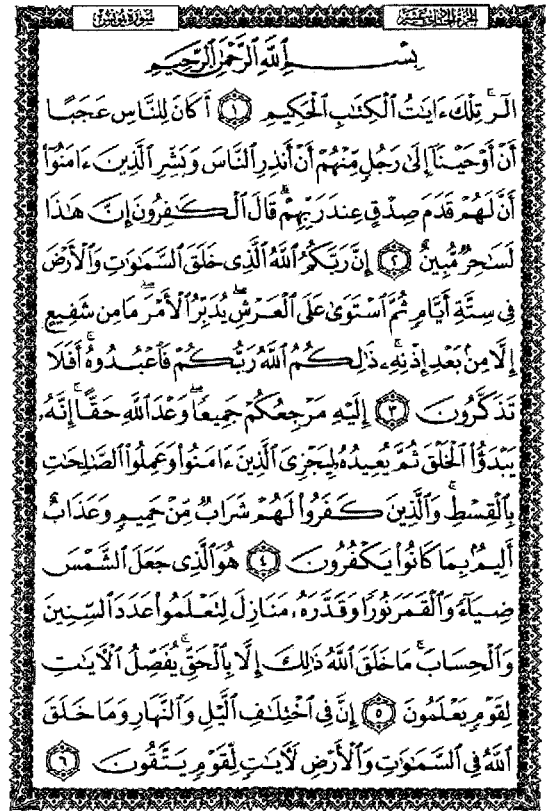 سورة يونس
الجزء الحادي عشر
بِسْمِ اللَّهِ الرَّحْمَٰنِ الرَّحِيمِ
الٓر ۚ تِلْكَ ءَايَٰتُ ٱلْكِتَٰبِ ٱلْحَكِيمِ ١ أَكَانَ لِلنَّاسِ عَجَبًا
أَنْ أَوْحَيْنَآ إِلَىٰ رَجُلٍ مِّنْهُمْ أَنْ أَنذِرِ ٱلنَّاسَ وَبَشِّرِ ٱلَّذِينَ ءَامَنُوٓا۟
أَنَّ لَهُمْ قَدَمَ صِدْقٍ عِندَ رَبِّهِمْ ۗ قَالَ ٱلْكَٰفِرُونَ إِنَّ هَٰذَا
لَسَٰحِرٌ مُّبِينٌ ٢ إِنَّ رَبَّكُمُ ٱللَّهُ ٱلَّذِى خَلَقَ ٱلسَّمَٰوَٰتِ وَٱلْأَرْضَ
فِى سِتَّةِ أَيَّامٍ ثُمَّ ٱسْتَوَىٰ عَلَى ٱلْعَرْشِ ۖ يُدَبِّرُ ٱلْأَمْرَ ۖ مَا مِن شَفِيعٍ
إِلَّا مِنۢ بَعْدِ إِذْنِهِۦ ۚ ذَٰلِكُمُ ٱللَّهُ رَبُّكُمْ فَٱعْبُدُوهُ ۚ أَفَلَا
تَذَكَّرُونَ ٣ إِلَيْهِ مَرْجِعُكُمْ جَمِيعًا ۖ وَعْدَ ٱللَّهِ حَقًّا ۚ إِنَّهُۥ
يَبْدَؤُا۟ ٱلْخَلْقَ ثُمَّ يُعِيدُهُۥ لِيَجْزِىَ ٱلَّذِينَ ءَامَنُوا۟ وَعَمِلُوا۟ ٱلصَّٰلِحَٰتِ
بِٱلْقِسْطِ ۚ وَٱلَّذِينَ كَفَرُوا۟ لَهُمْ شَرَابٌ مِّنْ حَمِيمٍ وَعَذَابٌ
أَلِيمٌۢ بِمَا كَانُوا۟ يَكْفُرُونَ ٤ هُوَ ٱلَّذِى جَعَلَ ٱلشَّمْسَ
ضِيَآءً وَٱلْقَمَرَ نُورًا وَقَدَّرَهُۥ مَنَازِلَ لِتَعْلَمُوا۟ عَدَدَ ٱلسِّنِينَ
وَٱلْحِسَابَ ۚ مَا خَلَقَ ٱللَّهُ ذَٰلِكَ إِلَّا بِٱلْحَقِّ ۚ يُفَصِّلُ ٱلْءَايَٰتِ
لِقَوْمٍ يَعْلَمُونَ ٥ إِنَّ فِى ٱخْتِلَٰفِ ٱلَّيْلِ وَٱلنَّهَارِ وَمَا خَلَقَ
ٱللَّهُ فِى ٱلسَّمَٰوَٰتِ وَٱلْأَرْضِ لَءَايَٰتٍ لِّقَوْمٍ يَتَّقُونَ ٦